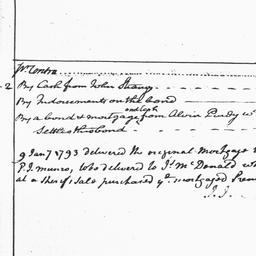 Pr Contra
2 By Cash from John Strang
By Indorsements on the bond
and Left
By a bond & mortgage from Alvin Purdy wc
Settles this bond
9 Jany 1793 delivered the original Mortgage
P.J. munro, who delivered to Js McDonald w
at a sherifs sale purchased ye mortgaged Prem
J. J.